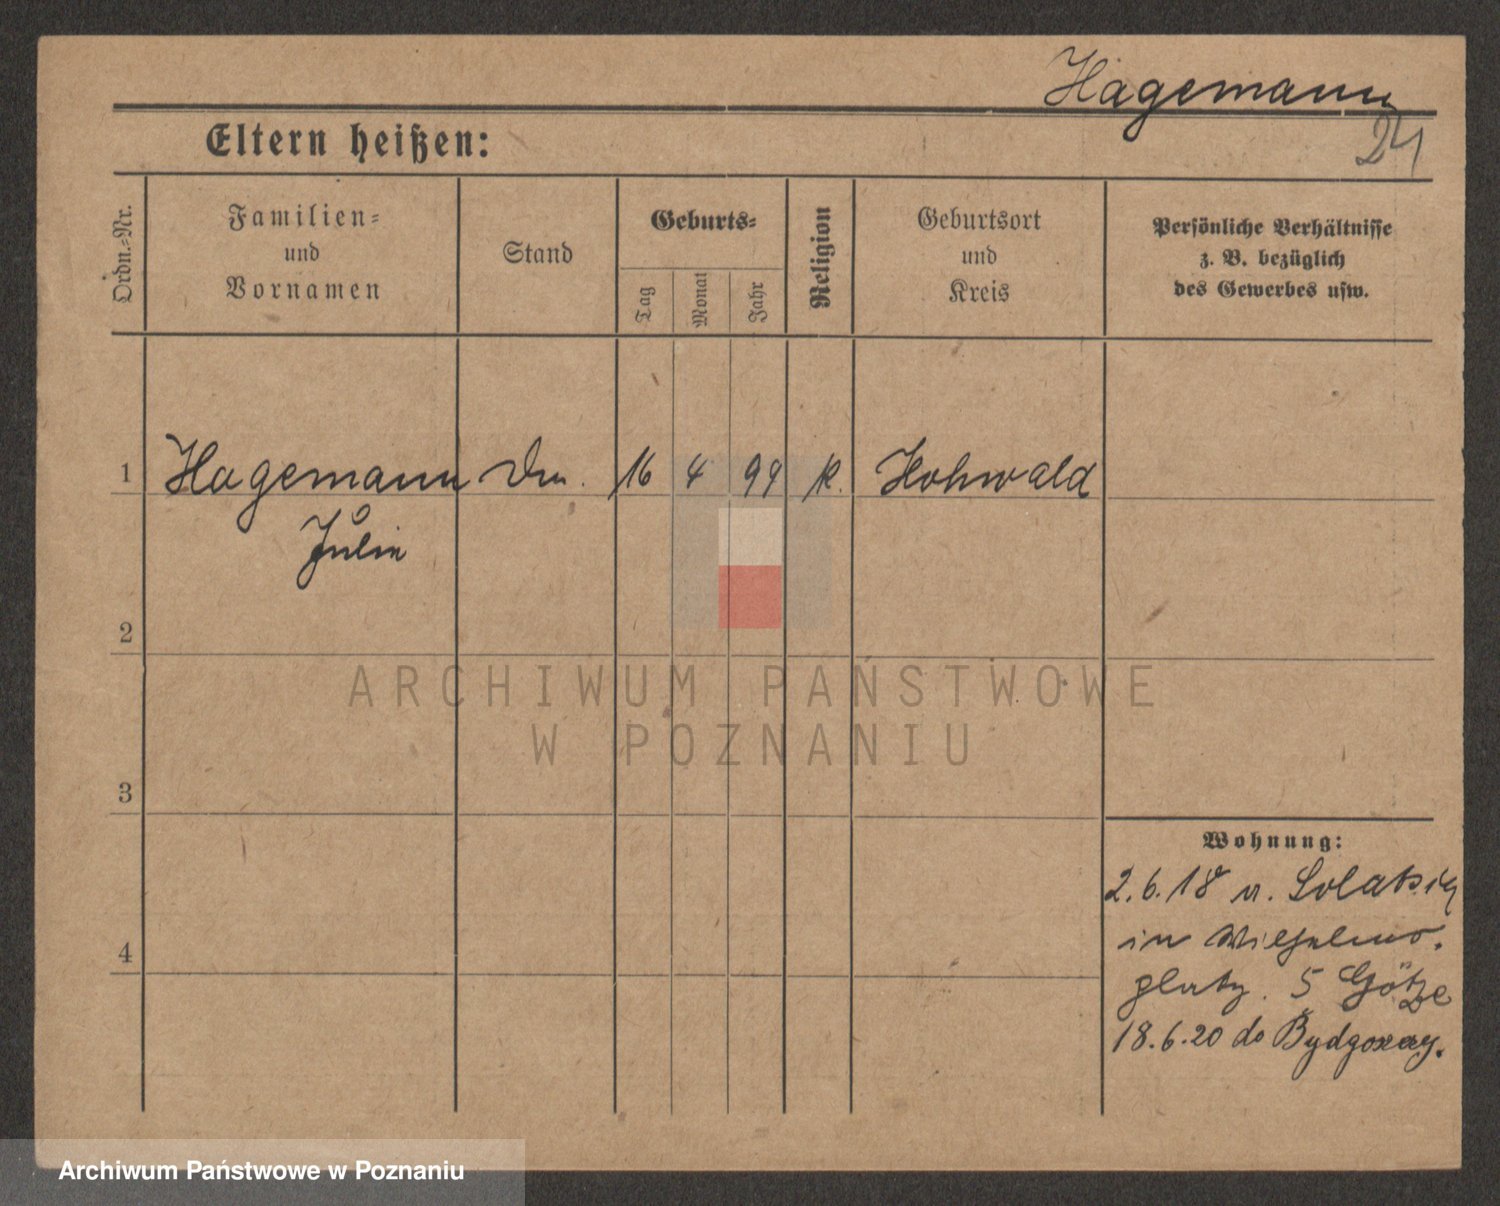 Hagemann
24
Eltern heißen:
Ordn.-Nr.
Familien-
und
Vornamen
Stand
Geburts-
Tag
Monat
Jahr
Religion
Geburtsort
und
Kreis
Persönliche Verhältnisse
z. B. bezüglich
des Gewerbes usw.
1 Hagemann 16 4 99 k. Hohwald
Julie
2
3
4
Wohnung:
2.6.18 v.
in Wilhelms-
platz. 5 Götze
18.6.20 do Bydgoszczy.
ARCHIWUM PAŃSTWOWE
W POZNANIU
Archiwum Państwowe w Poznaniu